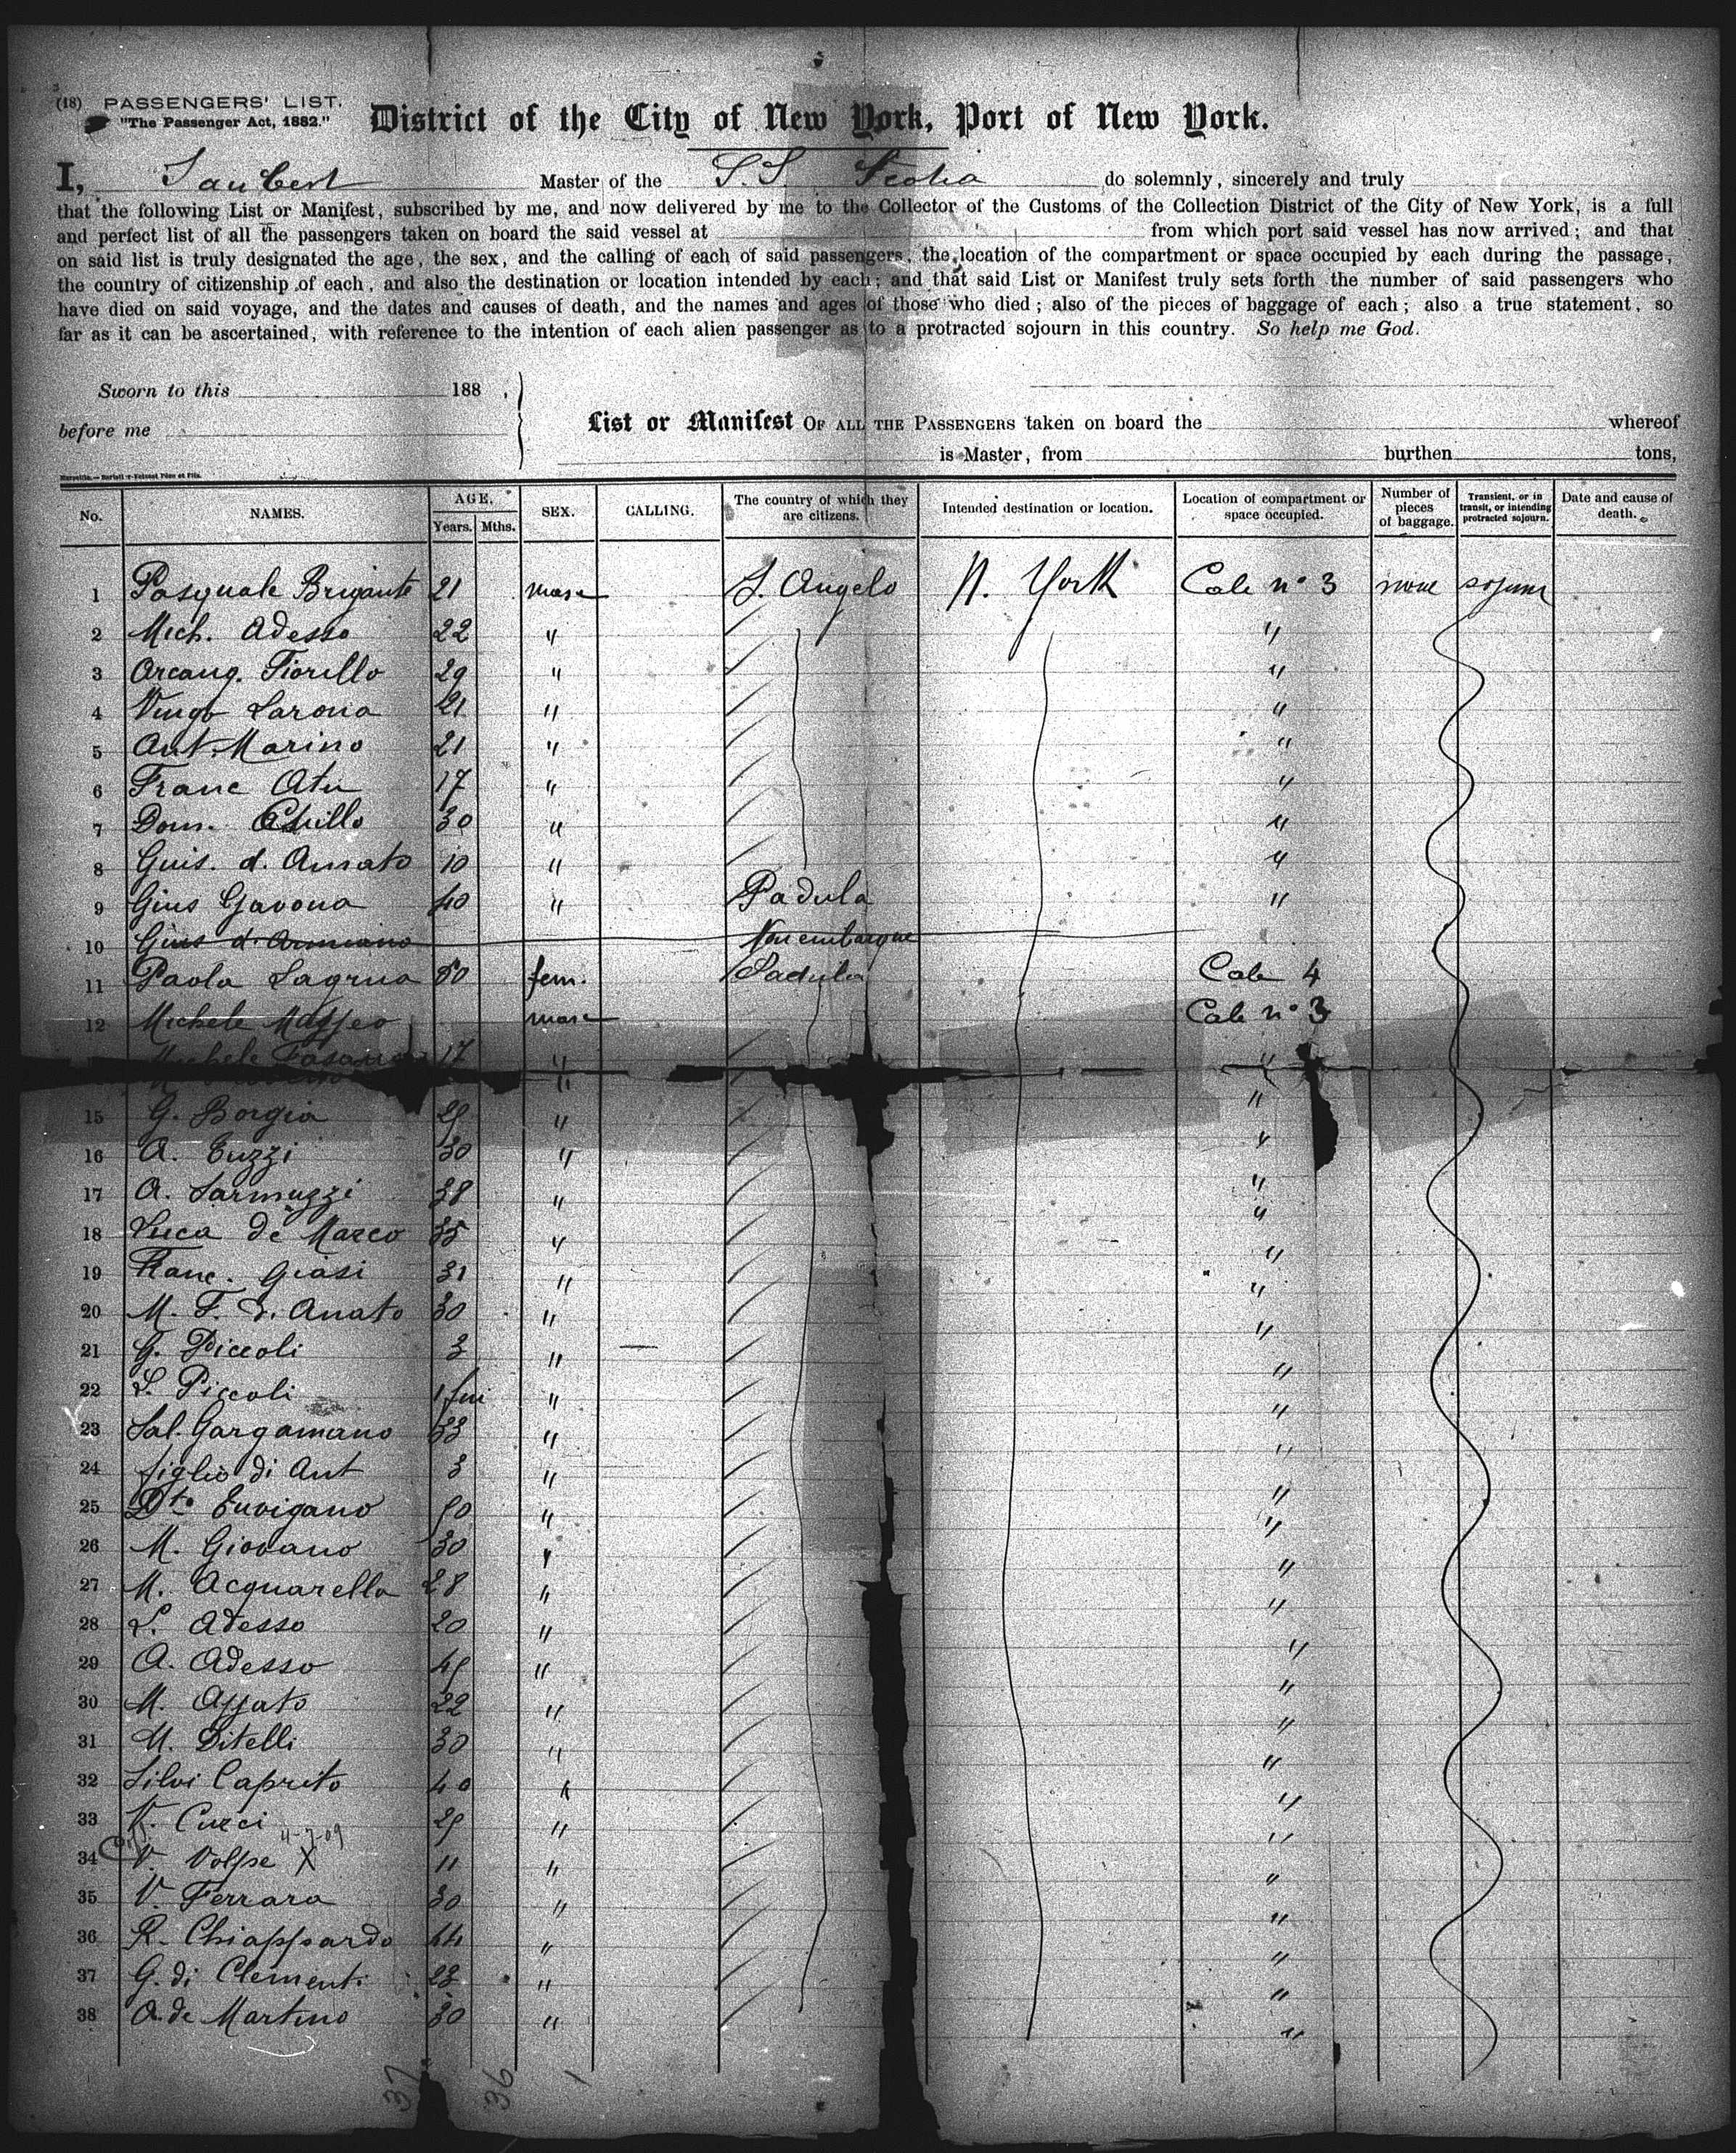 (18) PASSENGERS' LIST.
"The Passenger Act, 1882."
District of the City of New York, Port of New York.
I, Jaubert Master of the S.S. Scotia do solemnly, sincerely and truly
that the following List or Manifest, subscribed by me, and now delivered by me to the Collector of the Customs of the Collection District of the City of New York, is a full
and perfect list of all the passengers taken on board the said vessel at from which port said vessel has now arrived; and that
on said list is truly designated the age, the sex, and the calling of each of said passengers, the location of the compartment or space occupied by each during the passage,
the country of citizenship of each, and also the destination or location intended by each; and that said List or Manifest truly sets forth the number of said passengers who
have died on said voyage, and the dates and causes of death, and the names and ages of those who died; also of the pieces of baggage of each; also a true statement, so
far as it can be ascertained, with reference to the intention of each alien passenger as to a protracted sojourn in this country. So help me God.
Sworn to this 188 ,
before me
List or Manifest OF ALL THE PASSENGERS taken on board the whereof
is Master, from burthen tons,
No. NAMES. AGE. Years. Mths. SEX. CALLING. The country of which they are citizens. Intended destination or location. Location of compartment or space occupied. Number of pieces of baggage. Transient, or in transit, or intending protracted sojourn. Date and cause of death.
1 Pasquale Brigante 21 masc S. Angelo N. York Cale n° 3 none sojour
2 Mich. Adesso 22 " "
3 Arcang. Fiorillo 29 " "
4 Larona 21 " "
5 Ant. Marino 21 " "
6 Franc 17 " "
7 Dom. 30 " "
8 Guis. d. Amato 10 " "
9 Gius Gavona 40 " Padula "
10 Gius d. Non embarque
11 Paola Lagrua 50 fem. Padula Cale 4
12 Michele Maffeo masc Cale n° 3
Michele Fasano 17 " "
" "
15 G. Borgia 29 " "
16 A. 30 " "
17 A. Sarmuzzi 38 " "
18 Luca de Marco 35 " "
19 Franc. Giasi 31 " "
20 M. F. d. Amato 30 " "
21 G. Piccoli 3 " "
22 L. Piccoli 1 " "
23 Sal. Gargamano 33 " "
24 figlio di Ant 3 " "
25 Dto Euvigano 50 " "
26 M. Giovano 30 " "
27 M. Acquarella 28 " "
28 L. Adesso 20 " "
29 A. Adesso 45 " "
30 M. 22 " "
31 M. Ditelli 30 " "
32 Silvi Caprito 40 " "
33 V. Curci 29 " "
4-7-09
34 V. Volpe X 11 " "
35 V. Ferrara 30 " "
36 R. Chiappardo 44 " "
37 G. di Clementi 23 " "
38 A. de Martino 30 " "
37 36 1